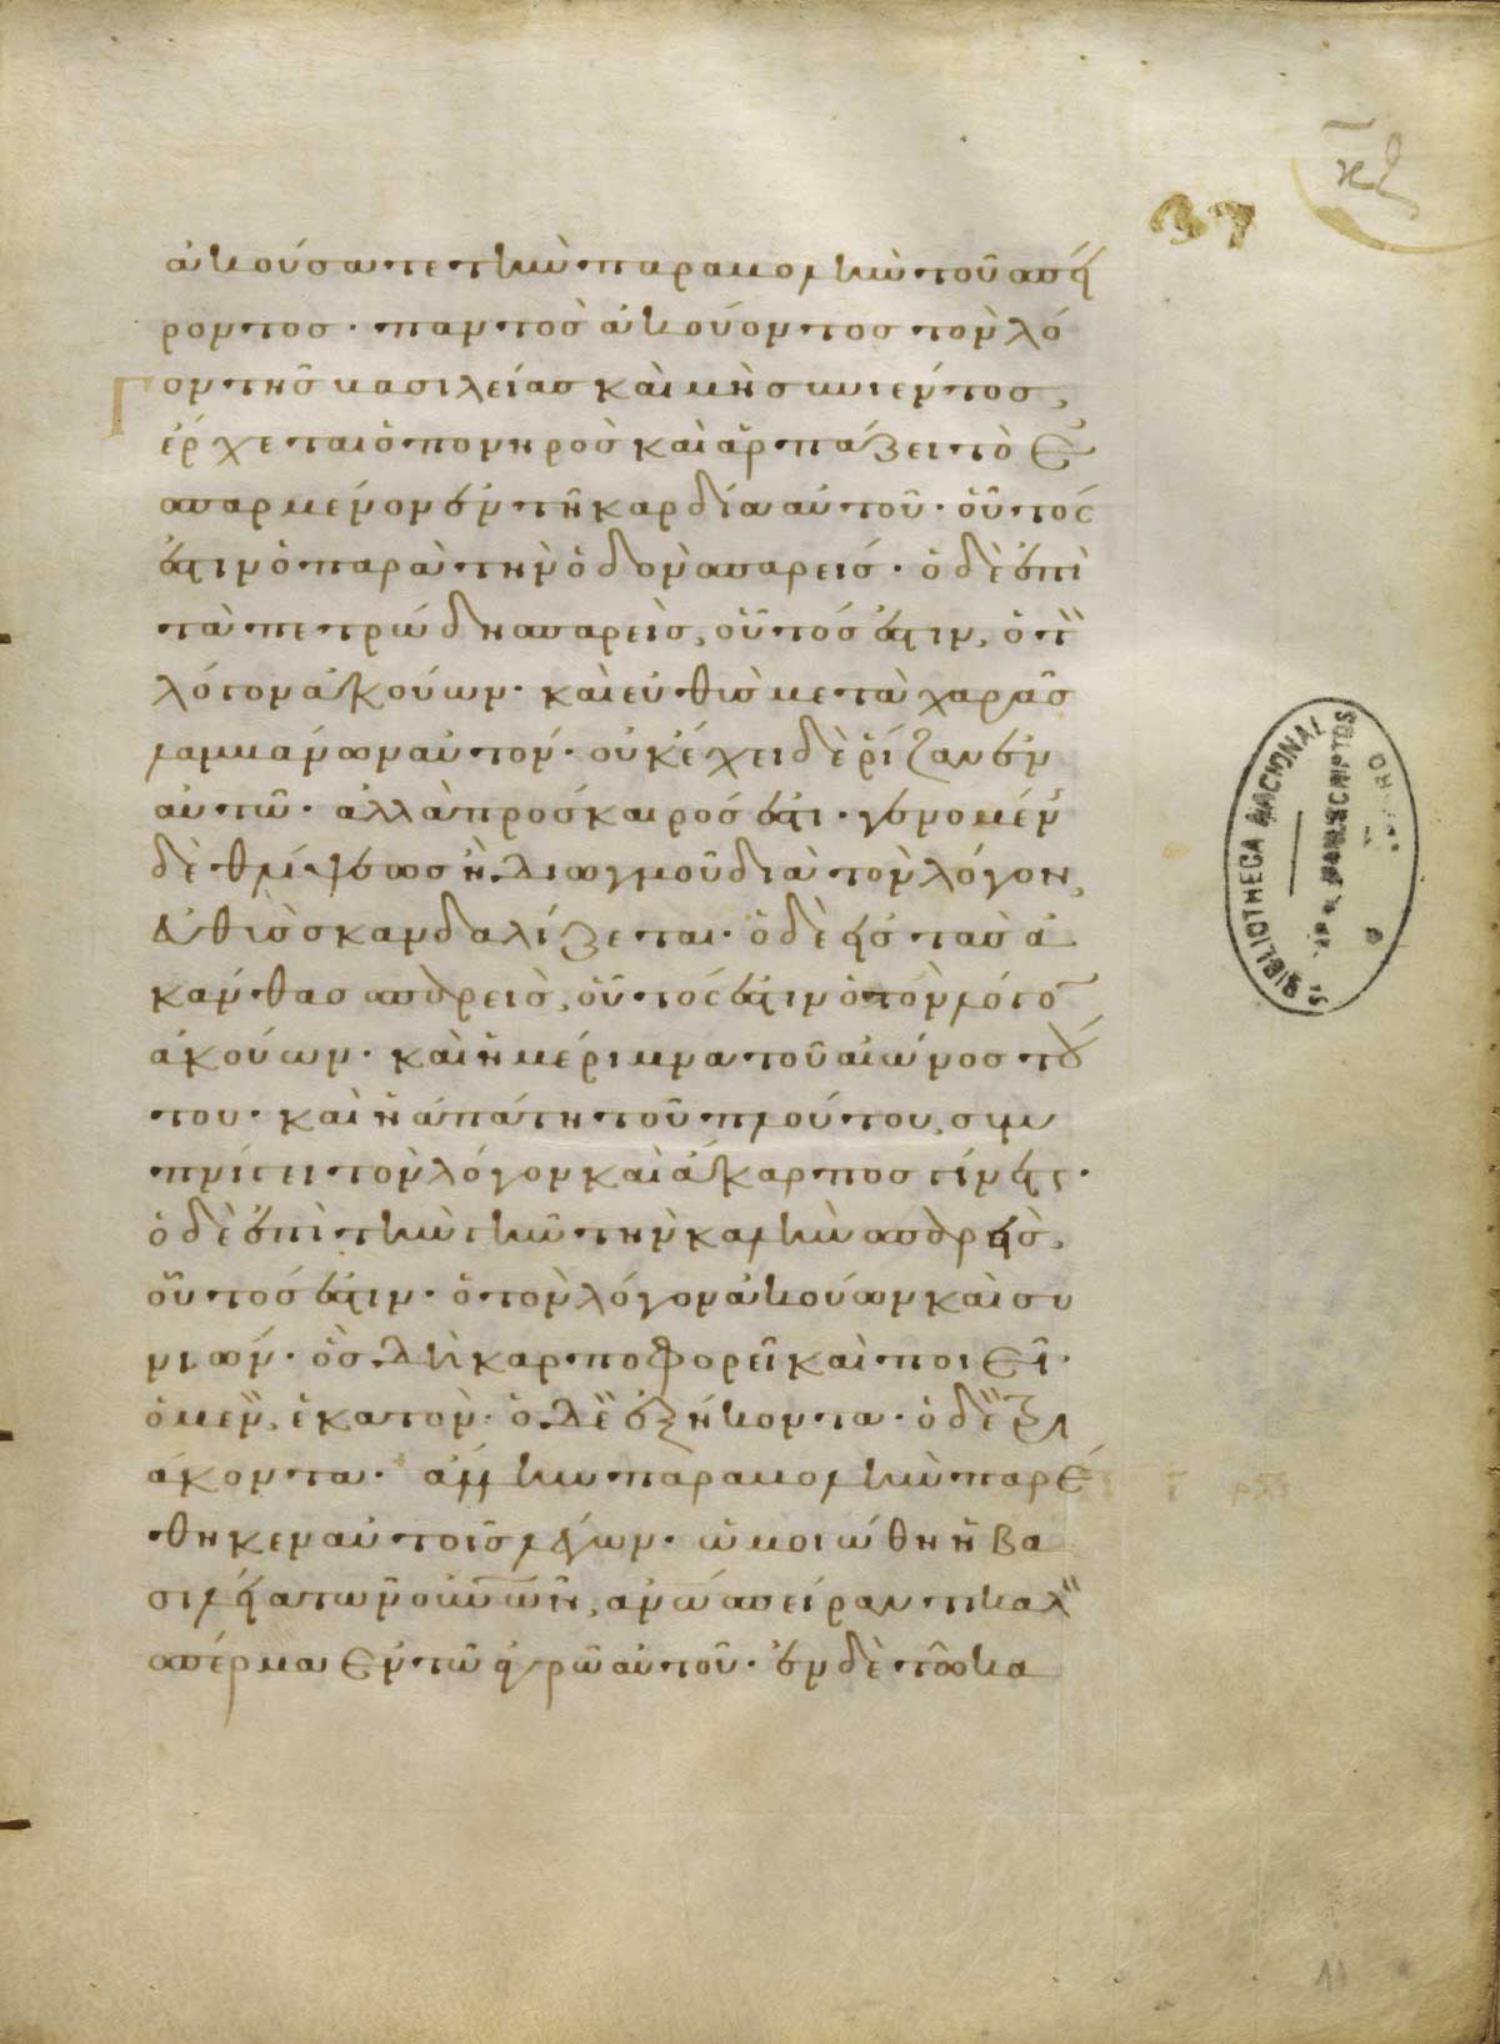 κδ
37
ἀκούσατε τὴν παραβολὴν τοῦ σπεί
ροντος · παντὸς ἀκούοντος τὸν λό
Γον τῆς βασιλείας καὶ μὴ συνιέντος,
ἔρχεται ὁ πονηρὸς καὶ ἁρπάζει τὸ ἐ
σπαρμένον ἐν τῆ καρδία αὐτοῦ · οὗτός
ἐστιν ὁ παρὰ τὴν ὁδὸν σπαρείς · ὁ δὲ ἐπὶ
τὰ πετρώδη σπαρείς, οὗτός ἐστιν, ὁ τὸν
λόγον ἀκούων · καὶ εὐθὺς μετὰ χαρᾶς
λαμβάνων αὐτόν · οὐκ ἔχει δὲ ῥίζαν ἐν
αὐτῶ · ἀλλὰ πρόσκαιρός ἐστι · γενομένης
δὲ θλίψεως ἢ διωγμοῦ διὰ τὸν λόγον,
εὐθὺς σκανδαλίζεται · ὁ δὲ εἰς τὰς ἀ
κάνθας σπαρείς, οὗτός ἐστιν ὁ τὸν λόγον
ἀκούων · καὶ ἡ μέριμνα τοῦ αἰῶνος τού
του · καὶ ἡ ἀπάτη τοῦ πλούτου, συμ
πνίγει τὸν λόγον καὶ ἄκαρπος γίνεται ·
ὁ δὲ ἐπὶ τὴν γῆν τὴν καλὴν σπαρείς,
οὗτός ἐστιν · ὁ τὸν λόγον ἀκούων καὶ συ
νιών · ὃς δὴ καρποφορεῖ καὶ ποιεῖ ·
ὁ μὲν, ἑκατόν · ὁ δὲ ἑξήκοντα · ὁ δὲ τρι
άκοντα · ἄλλην παραβολὴν παρέ
θηκεν αὐτοῖς λέγων · ὡμοιώθη ἡ βα
σιλεία τῶν οὐνῶν, ἀνῶ σπείραντι καλὸν
σπέρμα ἐν τῶ ἀγρῶ αὐτοῦ · ἐν δὲ τῶ κα
BIBLIOTHECA NACIONAL